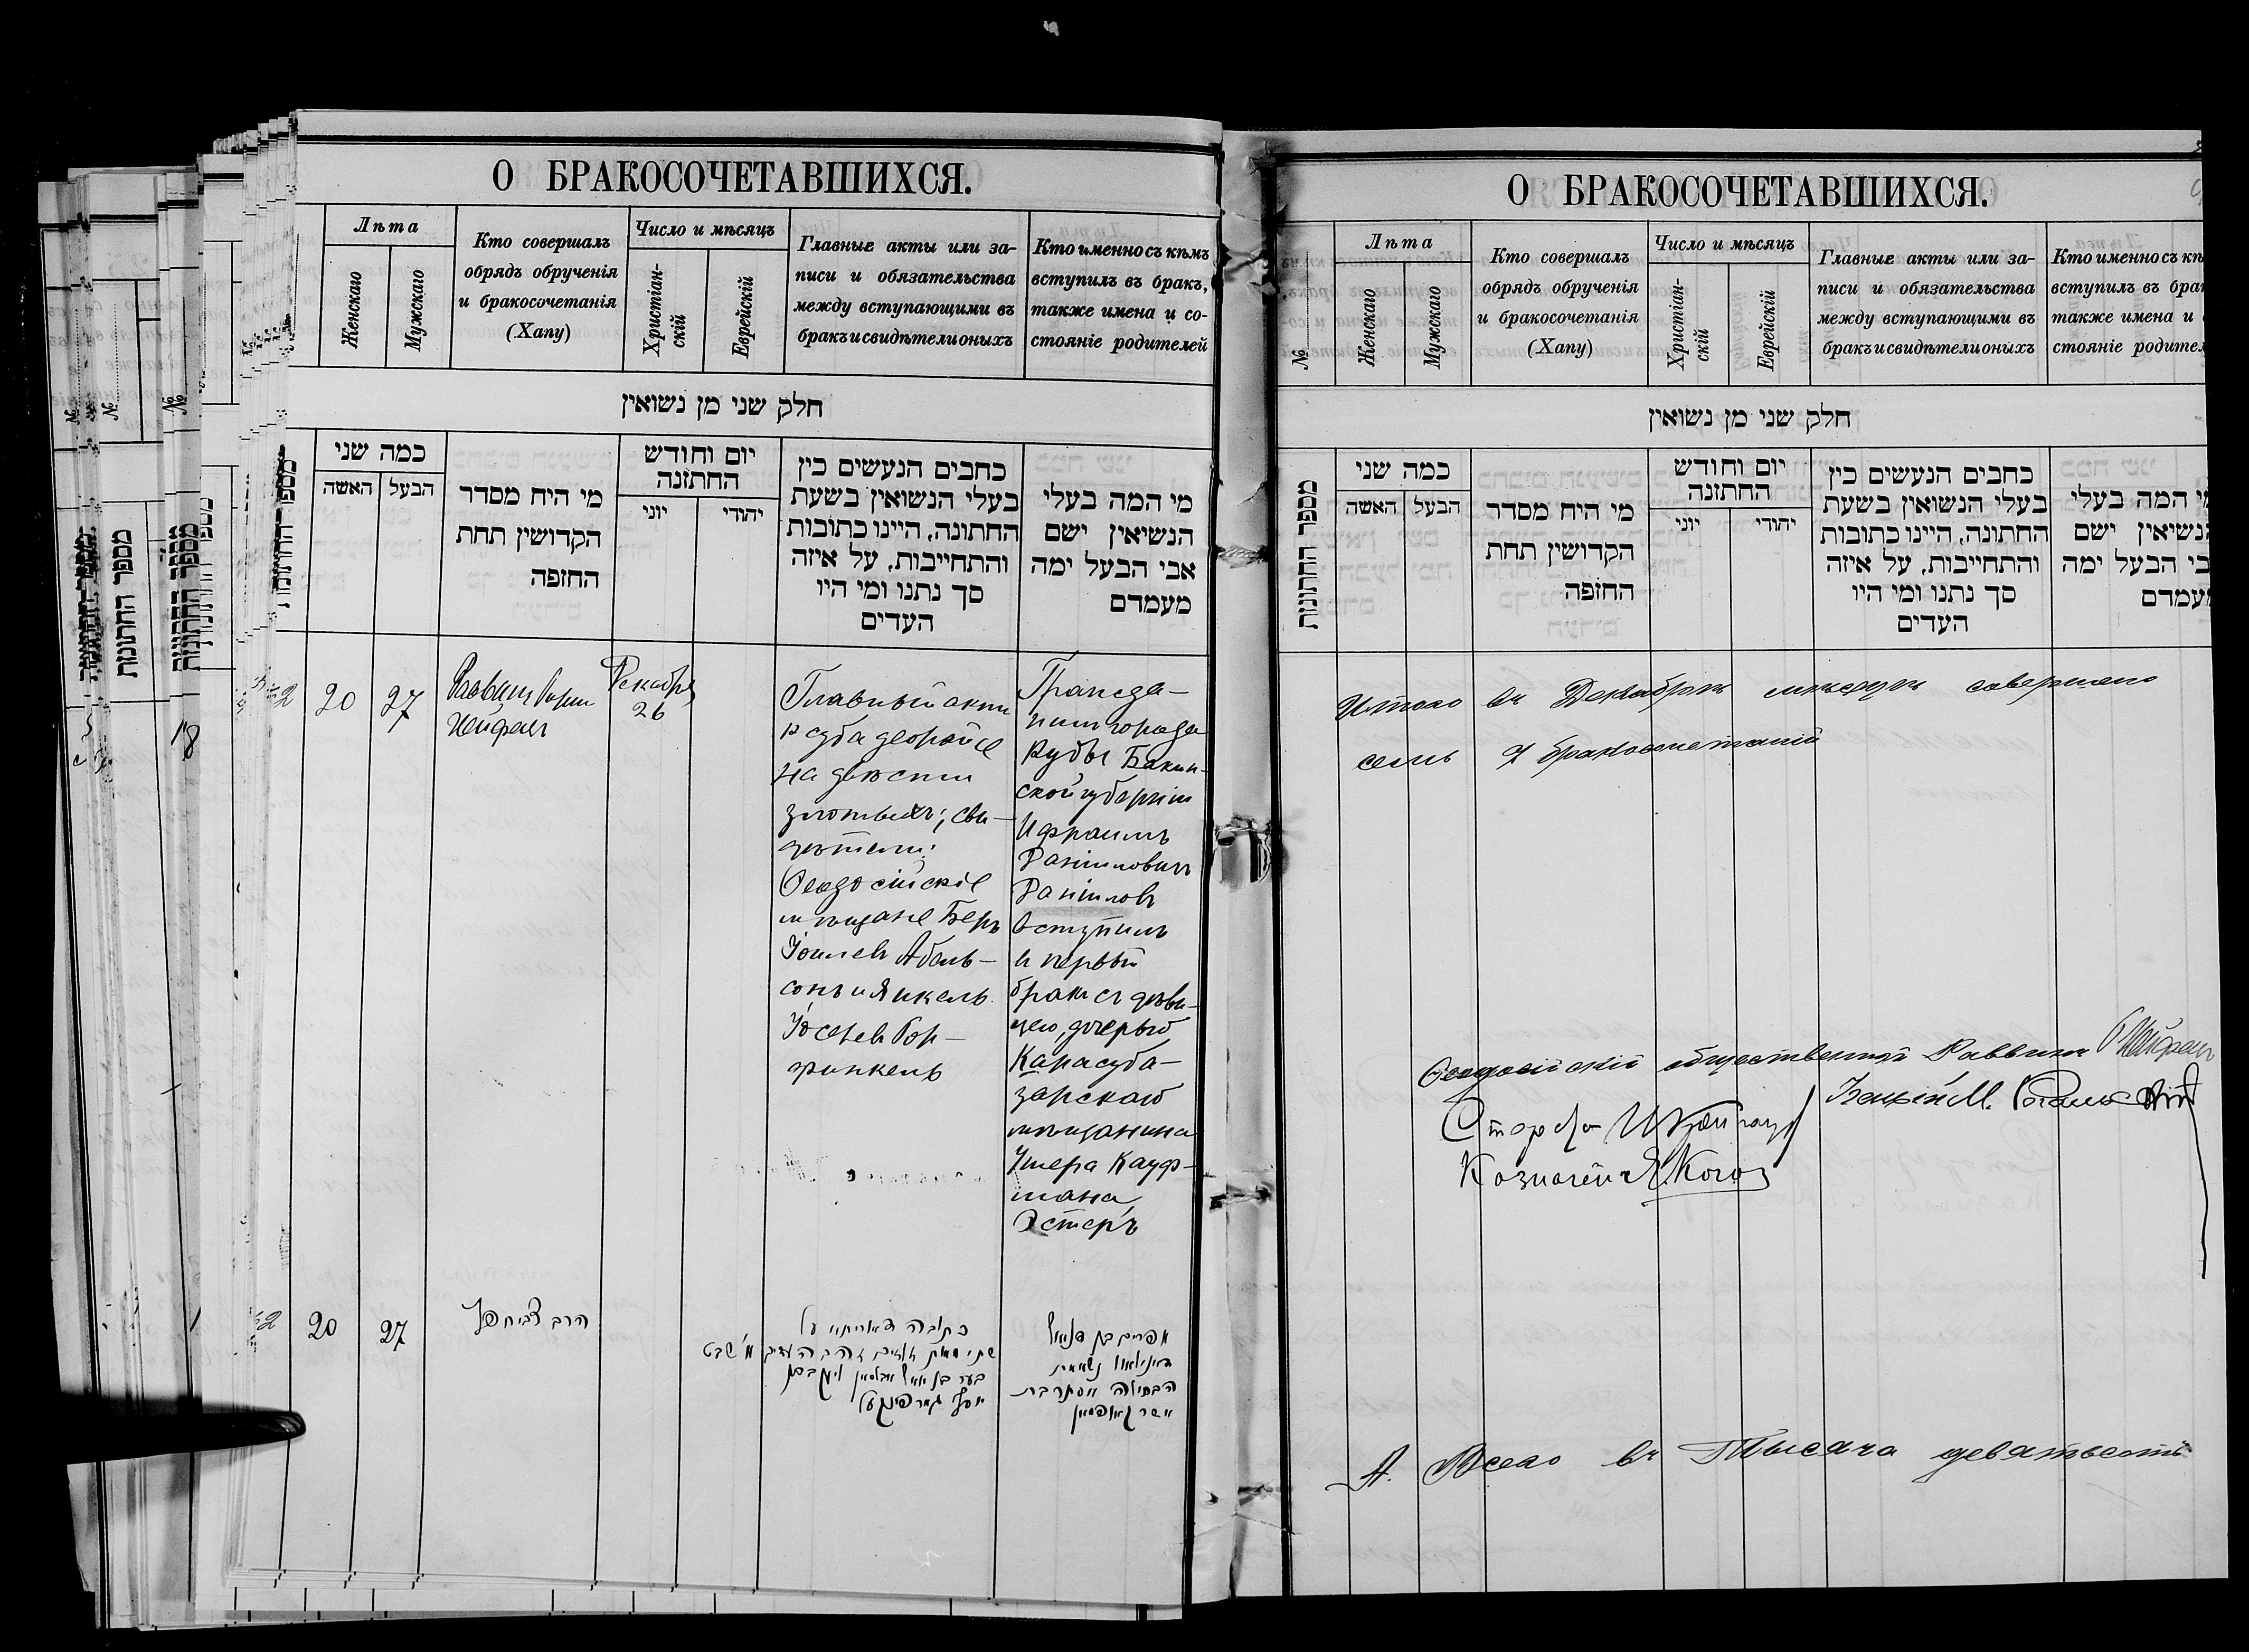 О БРАКОСОЧЕТАВШИХСЯ.
Лѣта
Женскаго
Мужскаго
Кто совершалъ
обрядъ обрученія
и бракосочетанія
(Хапу)
Число и мѣсяцъ
Христіан-
скій
Еврейскій
Главные акты или за-
писи и обязательства
между вступающими въ
бракъ и свидѣтели оныхъ
Кто именно съ кѣмъ
вступилъ въ бракъ,
также имена и со-
стояніе родителей
חלק שני מן נשואין
מספר החתונות
כמה שני
האשה
הבעל
מי היח מסדר
הקדושין תחת
החופה
יום וחודש
החתונה
יוני
יהודי
כחבים הנעשים כין
בעלי הנשואין בשעת
החתונה, היינו כתובות
והתחייבות, על איזה
סך נתנו ומי היו
העדים
מי המה בעלי
הנשיאין ישם
אבי הבעל ימה
מעמדם
20
27
Раввинъ
Нейфахъ
Декабря
26
Главный актъ
на двѣсти
злотыхъ; сви-
дѣтели:
Ѳеодосійскіе
мѣщане Беръ
Іоилевъ Абель-
сонъ и Янкель
Іосевъ Гор-
финкель
Гражда-
нинъ города
Кубы Бакин-
ской губерніи
Ифраимъ
Даніиловичъ
Даніиловъ
вступилъ
въ первый
бракъ съ дѣви-
цею, дочерью
Карасуба-
зарскаго
мѣщанина
Ушера Кауф-
мана,
Эстеръ
20
27
הרב
כתובה דאורייתא על
שתי מאות זוזים
א׳ שבט
יוסף גארפינקעל
אפרים בן דניאל
דאנילאוו נשא את
הבתולה אסתר בת
אשר קאופמאן
О БРАКОСОЧЕТАВШИХСЯ.
№
Лѣта
Женскаго
Мужскаго
Кто совершалъ
обрядъ обрученія
и бракосочетанія
(Хапу)
Число и мѣсяцъ
Христіан-
скій
Еврейскій
Главные акты или за-
писи и обязательства
между вступающими въ
бракъ и свидѣтели оныхъ
Кто именно съ
вступилъ въ
также имена и
стояніе
חלק שני מן נשואין
מספר החתונות
כמה שני
האשה
הבעל
מי היח מסדר
הקדושין תחת
החופה
יום וחודש
החתונה
יוני
יהודי
כחבים הנעשים כין
בעלי הנשואין בשעת
החתונה, היינו כתובות
והתחייבות, על איזה
סך נתנו ומי היו
העדים
המה בעלי
ישם
הבעל ימה
מעמדם
Итого въ Декабрѣ мѣсяцѣ совершено
семь 7 бракосочетаній
Ѳеодосійскій общественный Раввинъ Нейфахъ
Староста
Казначей Я. Коган
А. Всего въ Тысяча девятьсотъ